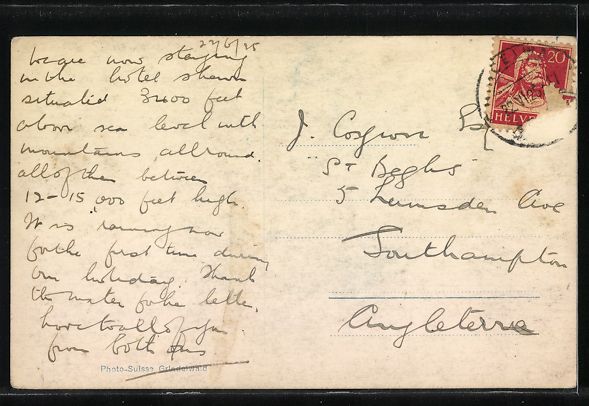 22/6/25
we are now staying
in the hotel shown
situated 3400 feet
above sea level with
mountains all round.
all of them between
12-15,000 feet high.
It is raining now
for the first time during
our holiday. Thank
the mater for the letter,
love to all of you
from both of us
Photo-Suisse Grindelwald
J. Esq
"St Beghs"
5 Lumsden Ave
Southampton
Angleterre
20
HELVE